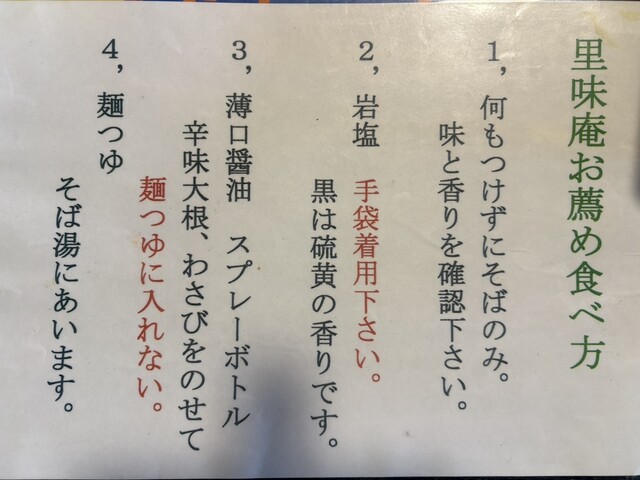 里味庵お薦め食べ方
1,何もつけずにそばのみ。
味と香りを確認下さい。
2,岩塩　手袋着用下さい。
黒は硫黄の香りです。
3,薄口醤油　スプレーボトル
辛味大根、わさびをのせて
麺つゆに入れない。
4,麺つゆ
そば湯にあいます。